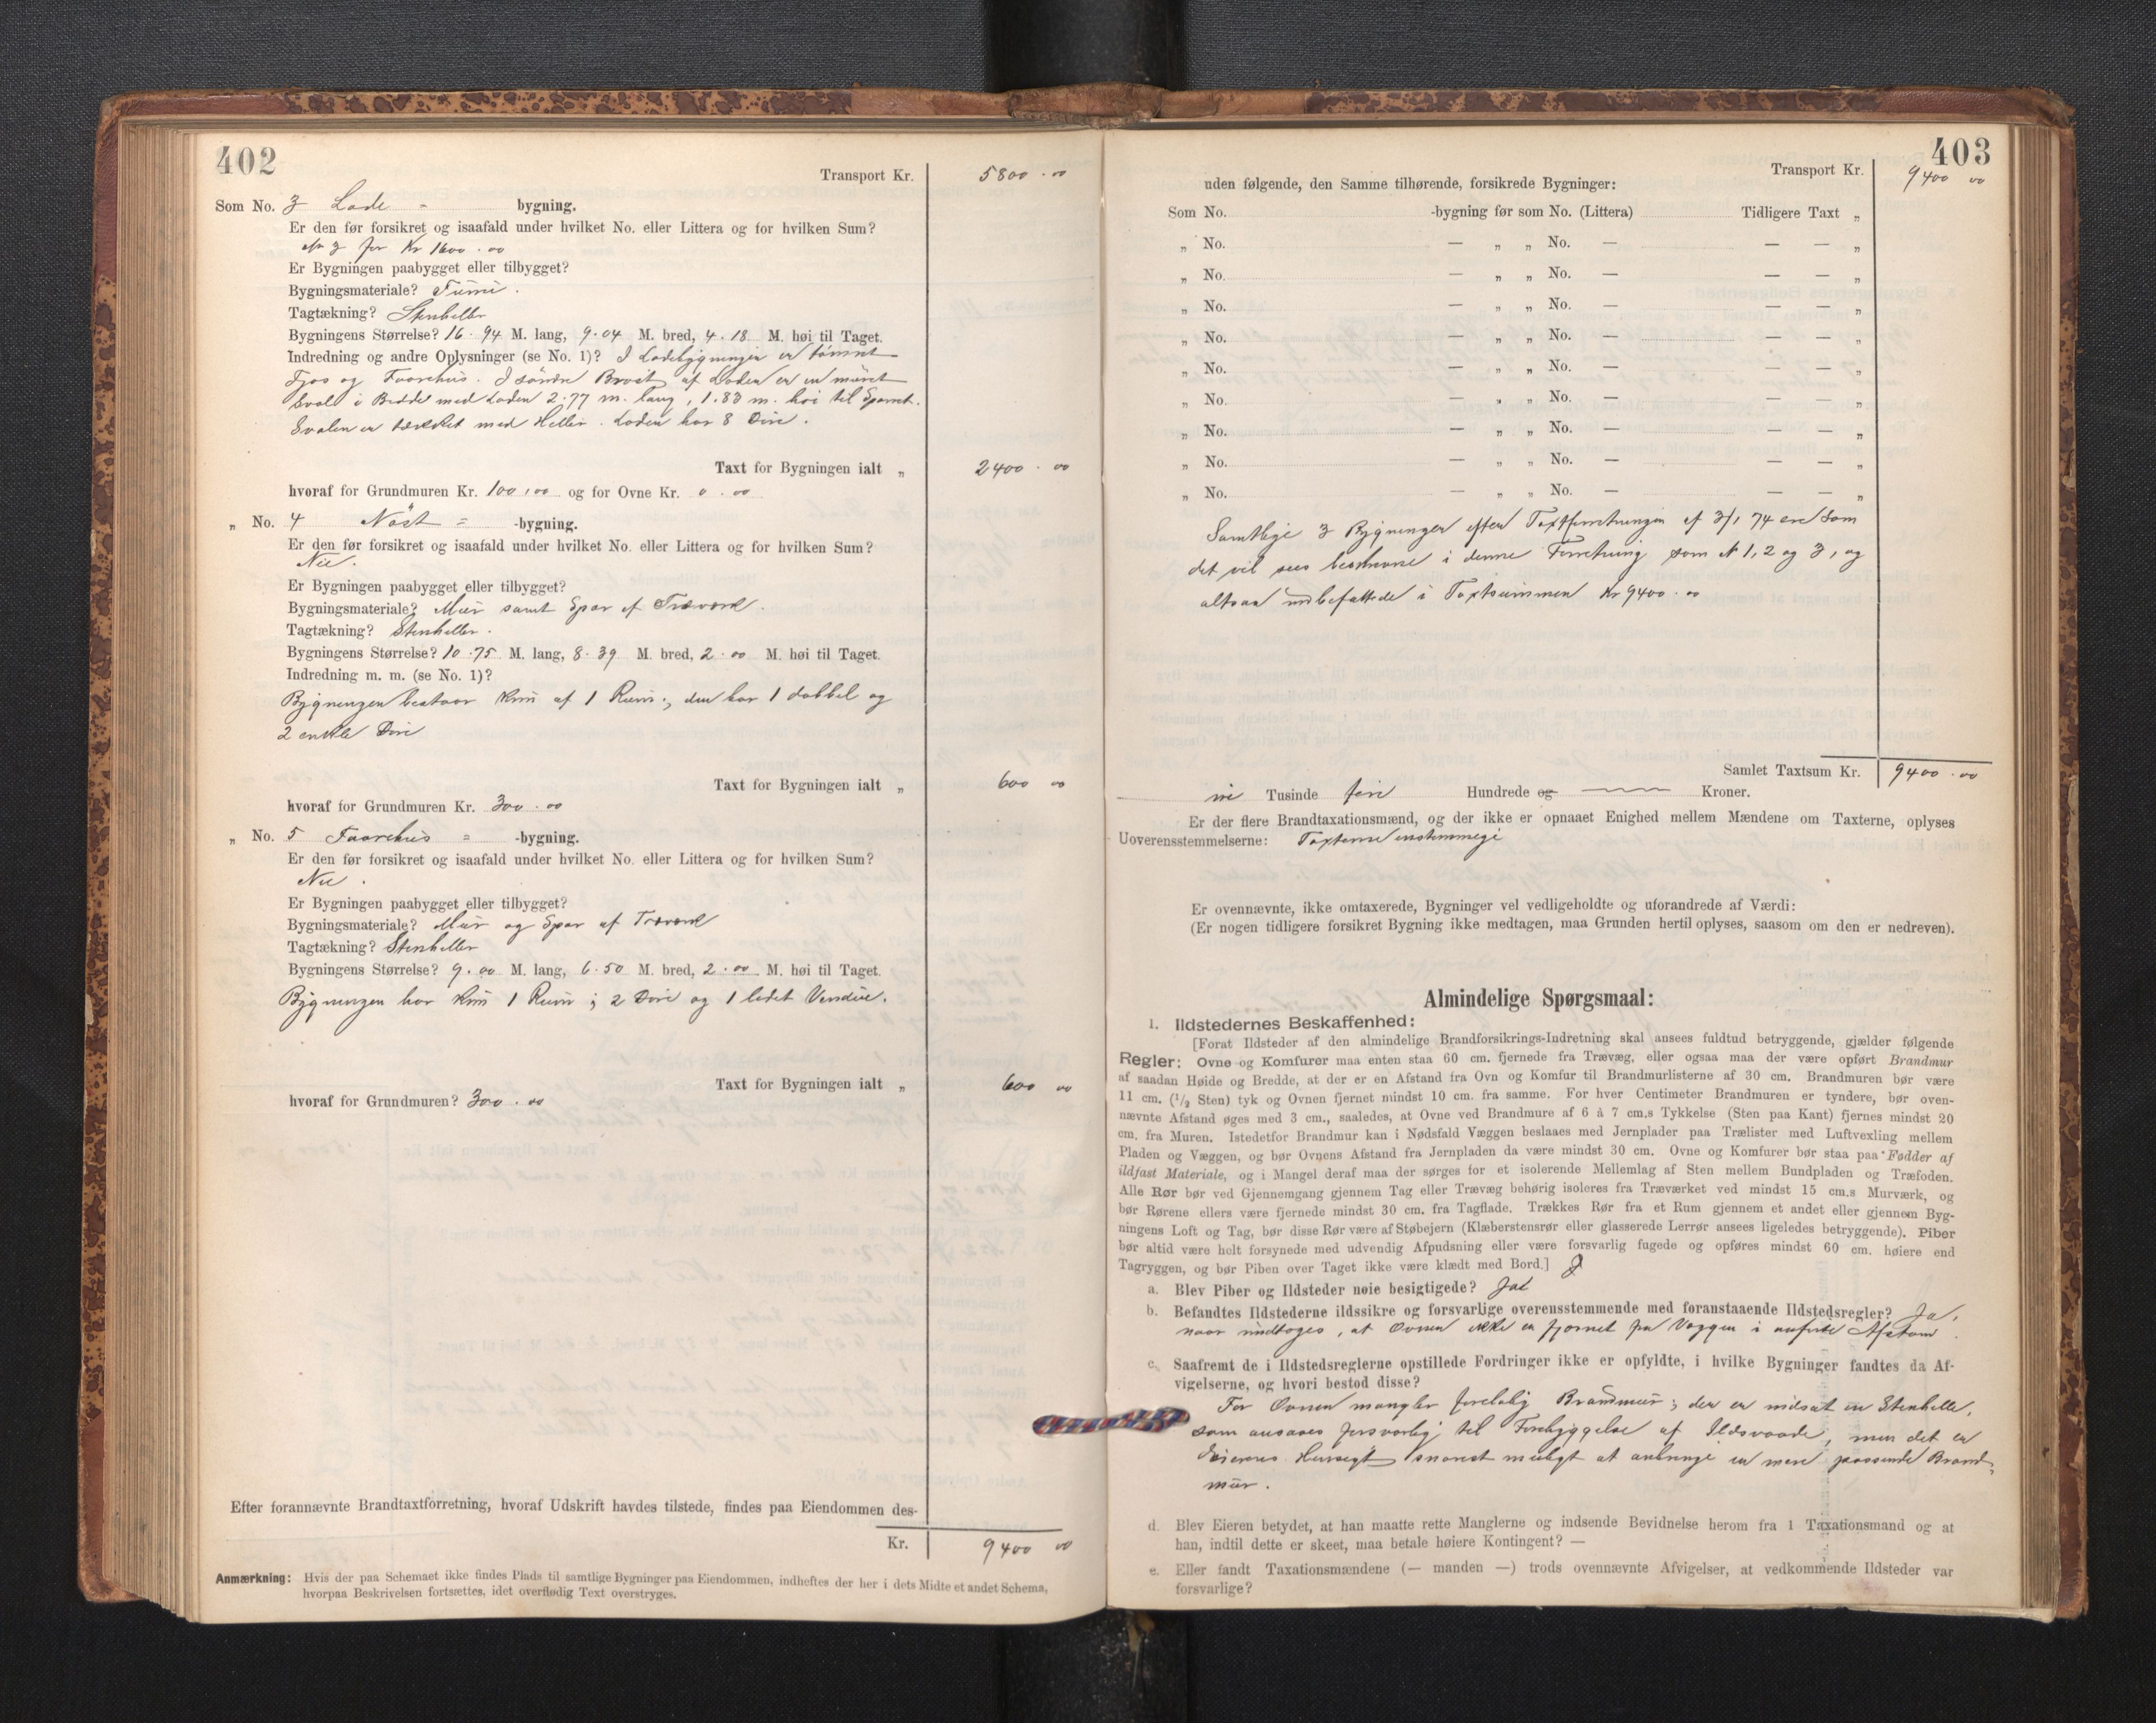 402
Transport Kr. 5800 . 00
Som No. 3 Lade = bygning.
Er den før forsikret og isaafald under hvilket No. eller Littera og for hvilken Sum?
No 3 for Kr 1600 . 00
Er Bygningen paabygget eller tilbygget?
Bygningsmateriale?
Tagtækning? Stenheller
Bygningens Størrelse? 16 . 94 M. lang, 9 . 04 M. bred, 4 . 18 M. høi til Taget.
Indredning og andre Oplysninger (se No. 1)? I Ladebygningen er tømret
Fjøs og Faarehus. I søndre af Laden er en muret
Sval i Bredde med Laden 2.77 m. lang, 1.83 m. høi til
Svalen er tækket med Heller. Laden har 8 Døre.
Taxt for Bygningen ialt „ 2400 . 00
hvoraf for Grundmuren Kr. 100,00 og for Ovne Kr. 0 . 00
„ No. 4 Nøst = -bygning.
Er den før forsikret og isaafald under hvilket No. eller Littera og for hvilken Sum?
Nei.
Er Bygningen paabygget eller tilbygget?
Bygningsmateriale? Mur samt Spær af Træværk.
Tagtækning? Stenheller.
Bygningens Størrelse? 10 . 75 M. lang, 8 . 39 M. bred, 2 . 00 M. høi til Taget.
Indredning m. m. (se No. 1)?
Bygningen bestaar kun af 1 Rum; den har 1 dobbel og
2 enkle Døre
Taxt for Bygningen ialt „ 600 00
hvoraf for Grundmuren Kr. 300 . 00
„ No. 5 Faarehus = -bygning.
Er den før forsikret og isaafald under hvilket No. eller Littera og for hvilken Sum?
Nei.
Er Bygningen paabygget eller tilbygget?
Bygningsmateriale? Mur og Spær af Træværk
Tagtækning? Stenheller
Bygningens Størrelse? 9 . 00 M. lang, 6 . 50 M. bred, 2 . 00 M. høi til Taget.
Bygningen har kun 1 Rum; 2 Døre og 1 ledet Vindue.
Taxt for Bygningen ialt „ 600 00
hvoraf for Grundmuren? 300 . 00
Efter forannævnte Brandtaxtforretning, hvoraf Udskrift havdes tilstede, findes paa Eiendommen des-
Kr. 9400 00
Anmærkning: Hvis der paa Schemaet ikke findes Plads til samtlige Bygninger paa Eiendommen, indheftes der her i dets Midte et andet Schema,
hvorpaa Beskrivelsen fortsættes, idet overflødig Text overstryges.
403
Transport Kr. 9400 00
uden følgende, den Samme tilhørende, forsikrede Bygninger:
Som No. -bygning før som No. (Littera) Tidligere Taxt „
„ No. — „ „ No. — — — „
„ No. — „ „ No. — — — „
„ No. — „ „ No. — — — „
„ No. — „ „ No. — — — „
„ No. — „ „ No. — — — „
„ No. — „ „ No. — — — „
„ No. — „ „ No. — — — „
„ No. — „ „ No. — — — „
„ No. — „ „ No. — — — „
Samtlige 3 Bygninger efter Taxtforretningen af 3/1 74 ere som
det vil sees beskrevne i denne Forretning som No 1, 2 og 3, og
altsaa indbefattede i Taxtsummen Kr 9400 . 00
Samlet Taxtsum Kr. 9400 . 00
ni Tusinde fire Hundrede og Kroner.
Er der flere Brandtaxationsmænd, og der ikke er opnaaet Enighed mellem Mændene om Taxterne, oplyses
Uoverensstemmelserne: Taxterne enstemmige
Er ovennævnte, ikke omtaxerede, Bygninger vel vedligeholdte og uforandrede af Værdi:
(Er nogen tidligere forsikret Bygning ikke medtagen, maa Grunden hertil oplyses, saasom om den er nedreven).
Almindelige Spørgsmaal:
1. Ildstedernes Beskaffenhed:
[Forat Ildsteder af den almindelige Brandforsikrings-Indretning skal ansees fuldtud betryggende, gjælder følgende
Regler: Ovne og Komfurer maa enten staa 60 cm. fjernede fra Trævæg, eller ogsaa maa der være opført Brandmur
af saadan Høide og Bredde, at der er en Afstand fra Ovn og Komfur til Brandmurlisterne af 30 cm. Brandmuren bør være
11 cm. (1/2 Sten) tyk og Ovnen fjernet mindst 10 cm. fra samme. For hver Centimeter Brandmuren er tyndere, bør oven-
nævnte Afstand øges med 3 cm., saaledes, at Ovne ved Brandmure af 6 à 7 cm.s Tykkelse (Sten paa Kant) fjernes mindst 20
cm. fra Muren. Istedetfor Brandmur kan i Nødsfald Væggen beslaaes med Jernplader paa Trælister med Luftvexling mellem
Pladen og Væggen, og bør Ovnens Afstand fra Jernpladen da være mindst 30 cm. Ovne og Komfurer bør staa paa Fødder af
ildfast Materiale, og i Mangel deraf maa der sørges for et isolerende Mellemlag af Sten mellem Bundpladen og Træfoden.
Alle Rør bør ved Gjennemgang gjennem Tag eller Trævæg behørig isoleres fra Træværket ved mindst 15 cm.s Murværk, og
bør Rørene ellers være fjernede mindst 30 cm. fra Tagflade. Trækkes Rør fra et Rum gjennem et andet eller gjennem Byg-
ningens Loft og Tag, bør disse Rør være af Støbejern (Klæberstensrør eller glasserede Lerrør ansees ligeledes betryggende). Piber
bør altid være helt forsynede med udvendig Afpudsning eller være forsvarlig fugede og opføres mindst 60 cm. høiere end
Tagryggen, og bør Piben over Taget ikke være klædt med Bord.]
a. Blev Piber og Ildsteder nøie besigtigede? Ja
b. Befandtes Ildstederne ildssikre og forsvarlige overensstemmende med foranstaaende Ildstedsregler? Ja,
naar undtages, at Ovnen ikke er fjernet fra Væggen i anførte Afstand.
c. Saafremt de i Ildstedsreglerne opstillede Fordringer ikke er opfyldte, i hvilke Bygninger fandtes da Af-
vigelserne, og hvori bestod disse?
For Ovnen mangler foreløbig Brandmur; der er indsat en Stenhelle,
som ansaaes forsvarlig til Forebyggelse af Ildsvaade, men det er
Eierens Hensigt snarest muligt at anbringe en mere passende Brand-
mur.
d. Blev Eieren betydet, at han maatte rette Manglerne og indsende Bevidnelse herom fra 1 Taxationsmand og at
han, indtil dette er skeet, maa betale høiere Kontingent? —
e. Eller fandt Taxationsmændene (— manden —) trods ovennævnte Afvigelser, at vedkommende Ildsteder var
forsvarlige?